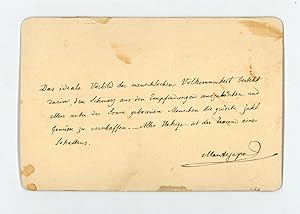 Das ideale Vorbild der menschlichen Vollkommenheit besteht
darin, den Schmerz aus den Empfindungen auszulöschen und
allen unter der Sonne geborenen Menschen die größte Zahl
Genüsse zu verschaffen. — Alles Uebrige ist der Traum eines
Schattens.
Mantegazza